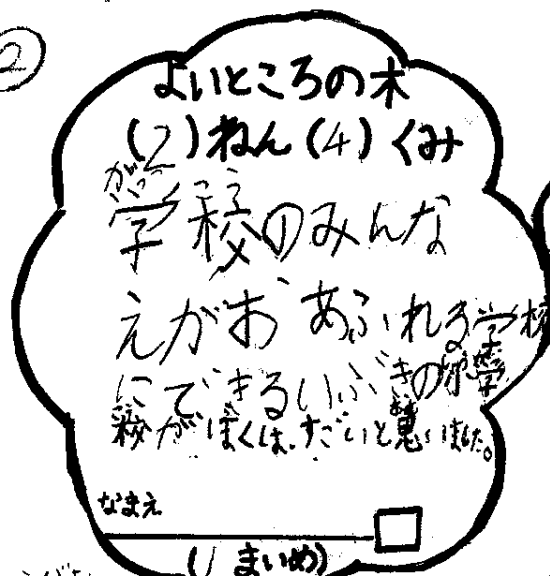 ②
よいところの木
(2)ねん(4)くみ
がっこう
学校のみんな
えがおあふれる学校
にできるいぶきの
校がぼくは、すごいと思いました。
なまえ
(1まいめ)